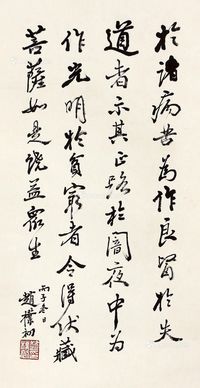 於诸病苦為作良醫於失
道者示其正路於闇夜中為
作光明於貧窮者令得伏藏
菩薩如是饒益眾生
丙子冬日
趙樸初